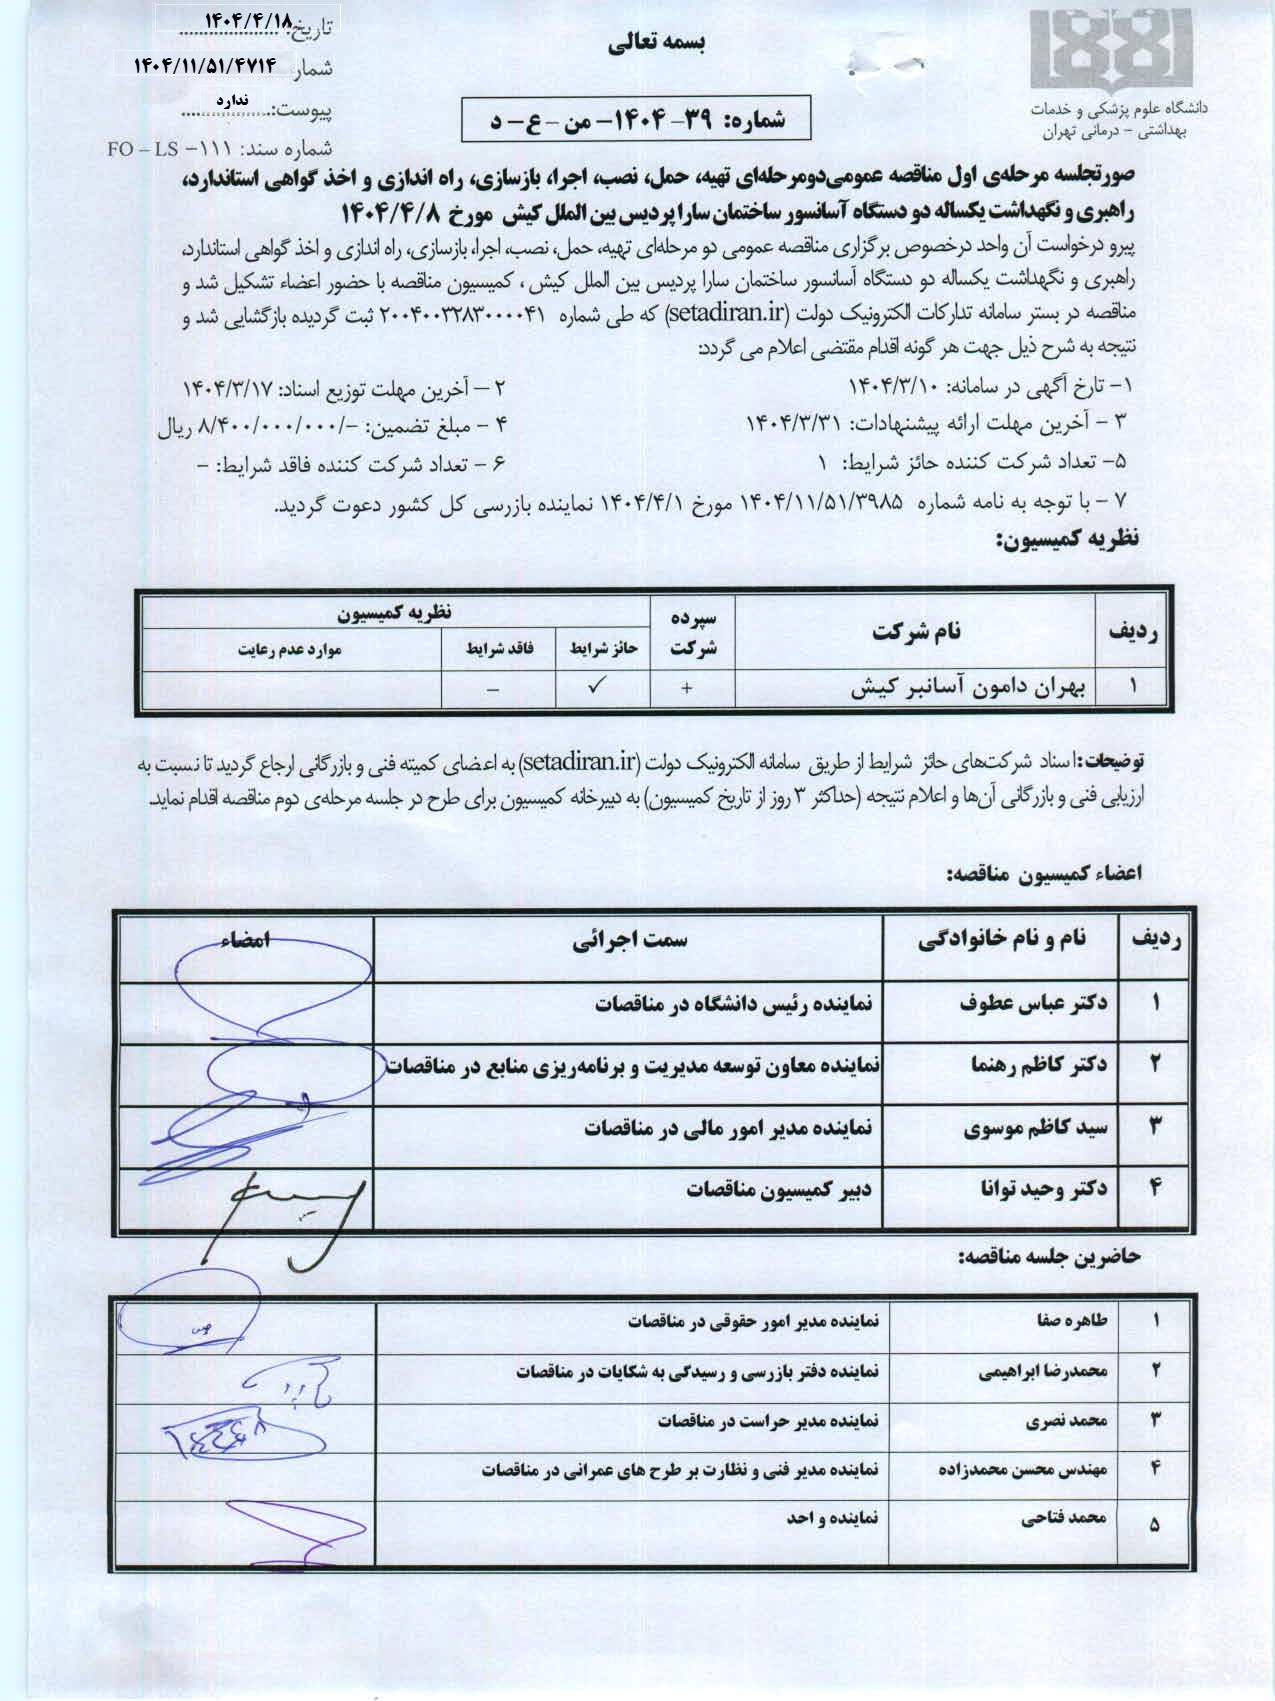 بسمه تعالی
تاریخ: ۱۴۰۴/۴/۱۸
شمار ۱۴۰۴/۱۱/۵۱/۴۷۱۴
پیوست: ندارد
شماره سند: FO – LS –۱۱۱
دانشگاه علوم پزشکی و خدمات
بهداشتی – درمانی تهران
شماره: ۳۹- ۱۴۰۴- من – ع – د
صورتجلسه مرحله‌ی اول مناقصه عمومی‌دومرحله‌ای تهیه، حمل، نصب، اجرا، بازسازی، راه اندازی و اخذ گواهی استاندارد،
راهبری و نگهداشت یکساله دو دستگاه آسانسور ساختمان سارا پردیس بین الملل کیش مورخ ۱۴۰۴/۴/۸
پیرو درخواست آن واحد درخصوص برگزاری مناقصه عمومی دو مرحله‌ای تهیه، حمل، نصب، اجرا، بازسازی، راه اندازی و اخذ گواهی استاندارد،
راهبری و نگهداشت یکساله دو دستگاه آسانسور ساختمان سارا پردیس بین الملل کیش ، کمیسیون مناقصه با حضور اعضاء تشکیل شد و
مناقصه در بستر سامانه تدارکات الکترونیک دولت (setadiran.ir) که طی شماره ۲۰۰۴۰۰۳۲۸۳۰۰۰۰۴۱ ثبت گردیده بازگشایی شد و
نتیجه به شرح ذیل جهت هر گونه اقدام مقتضی اعلام می گردد:
۱- تارخ آگهی در سامانه: ۱۴۰۴/۳/۱۰ ۲ – آخرین مهلت توزیع اسناد: ۱۴۰۴/۳/۱۷
۳ – آخرین مهلت ارائه پیشنهادات: ۱۴۰۴/۳/۳۱ ۴ – مبلغ تضمین: -/۸/۴۰۰/۰۰۰/۰۰۰ ریال
۵- تعداد شرکت کننده حائز شرایط: ۱ ۶ – تعداد شرکت کننده فاقد شرایط: –
۷ – با توجه به نامه شماره ۱۴۰۴/۱۱/۵۱/۳۹۸۵ مورخ ۱۴۰۴/۴/۱ نماینده بازرسی کل کشور دعوت گردید.
نظریه کمیسیون:
ردیف نام شرکت سپرده شرکت نظریه کمیسیون
حائز شرایط فاقد شرایط موارد عدم رعایت
۱ بهران دامون آسانبر کیش + ✓ –
توضیحات: اسناد شرکت‌های حائز شرایط از طریق سامانه الکترونیک دولت (setadiran.ir) به اعضای کمیته فنی و بازرگانی ارجاع گردید تا نسبت به
ارزیابی فنی و بازرگانی آن‌ها و اعلام نتیجه (حداکثر ۳ روز از تاریخ کمیسیون) به دبیرخانه کمیسیون برای طرح در جلسه مرحله‌ی دوم مناقصه اقدام نماید.
اعضاء کمیسیون مناقصه:
ردیف نام و نام خانوادگی سمت اجرائی امضاء
۱ دکتر عباس عطوف نماینده رئیس دانشگاه در مناقصات
۲ دکتر کاظم رهنما نماینده معاون توسعه مدیریت و برنامه‌ریزی منابع در مناقصات
۳ سید کاظم موسوی نماینده مدیر امور مالی در مناقصات
۴ دکتر وحید توانا دبیر کمیسیون مناقصات
حاضرین جلسه مناقصه:
۱ طاهره صفا نماینده مدیر امور حقوقی در مناقصات
۲ محمدرضا ابراهیمی نماینده دفتر بازرسی و رسیدگی به شکایات در مناقصات
۳ محمد نصری نماینده مدیر حراست در مناقصات
۴ مهندس محسن محمدزاده نماینده مدیر فنی و نظارت بر طرح های عمرانی در مناقصات
۵ محمد فتاحی نماینده واحد